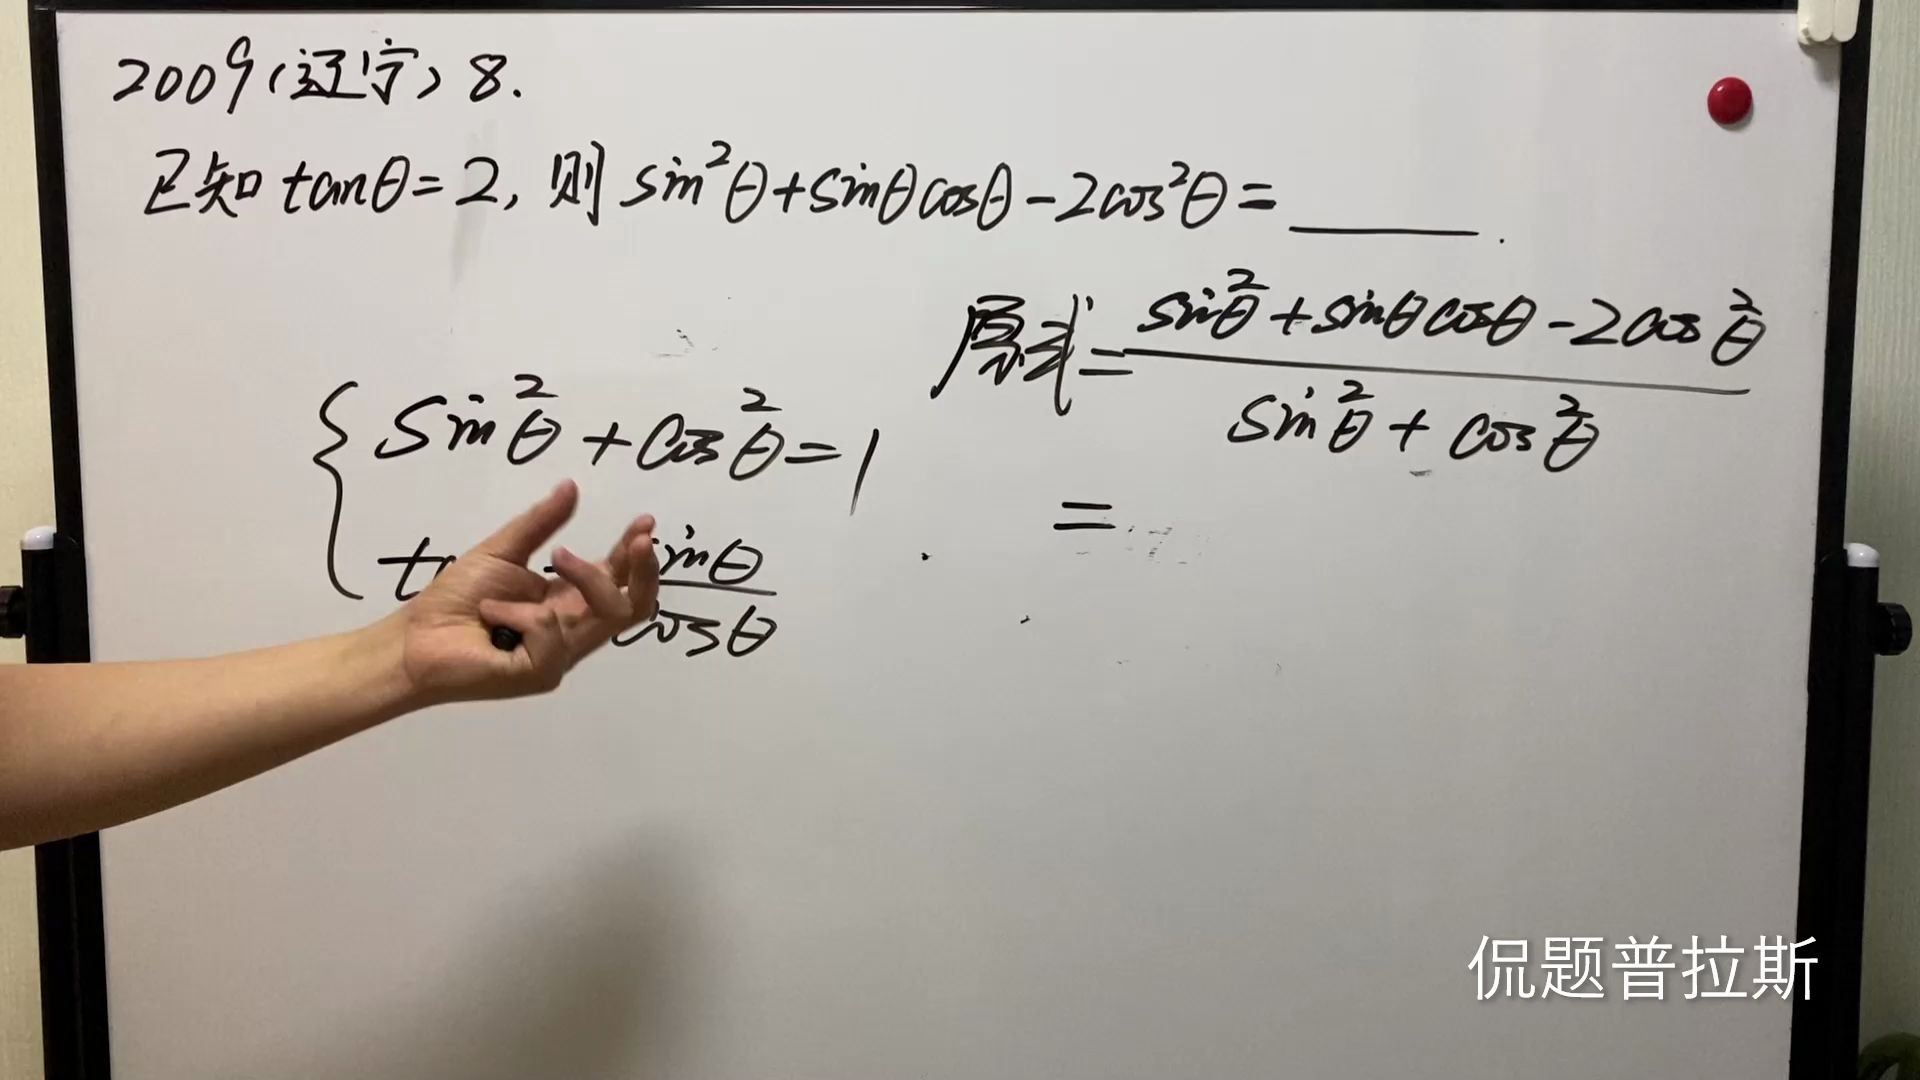 2009(辽宁) 8.
已知 tanθ=2, 则 sin²θ+sinθcosθ-2cos²θ=______.
原式=(sin²θ+sinθcosθ-2cos²θ)/(sin²θ+cos²θ)
=
sin²θ+cos²θ=1
sinθ
cosθ
侃题普拉斯